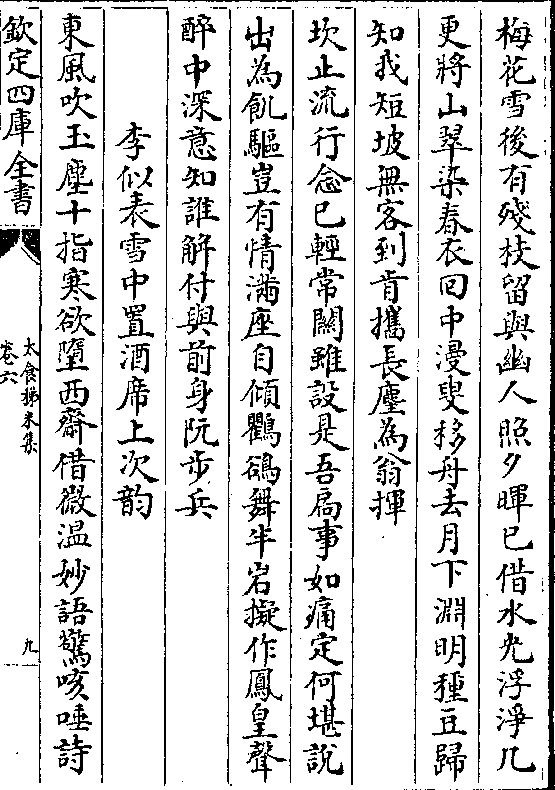 梅花雪後有殘枝留與幽人照夕暉已借水光浮淨几
更將山翠染春衣回中漫叟移舟去月下淵明種豆歸
知我短坡無客到肯攜長麈為翁揮
坎止流行念已輕常關雖設是吾扃事如痛定何堪說
出為飢驅豈有情滿座自傾鸜鵒舞半岩擬作鳳皇聲
醉中深意知誰解付與前身阮步兵
李似表雪中置酒席上次韵
東風吹玉塵十指寒欲墮西齋借微温妙語驚咳唾詩
欽定四庫全書
太倉稊米集
卷六
九